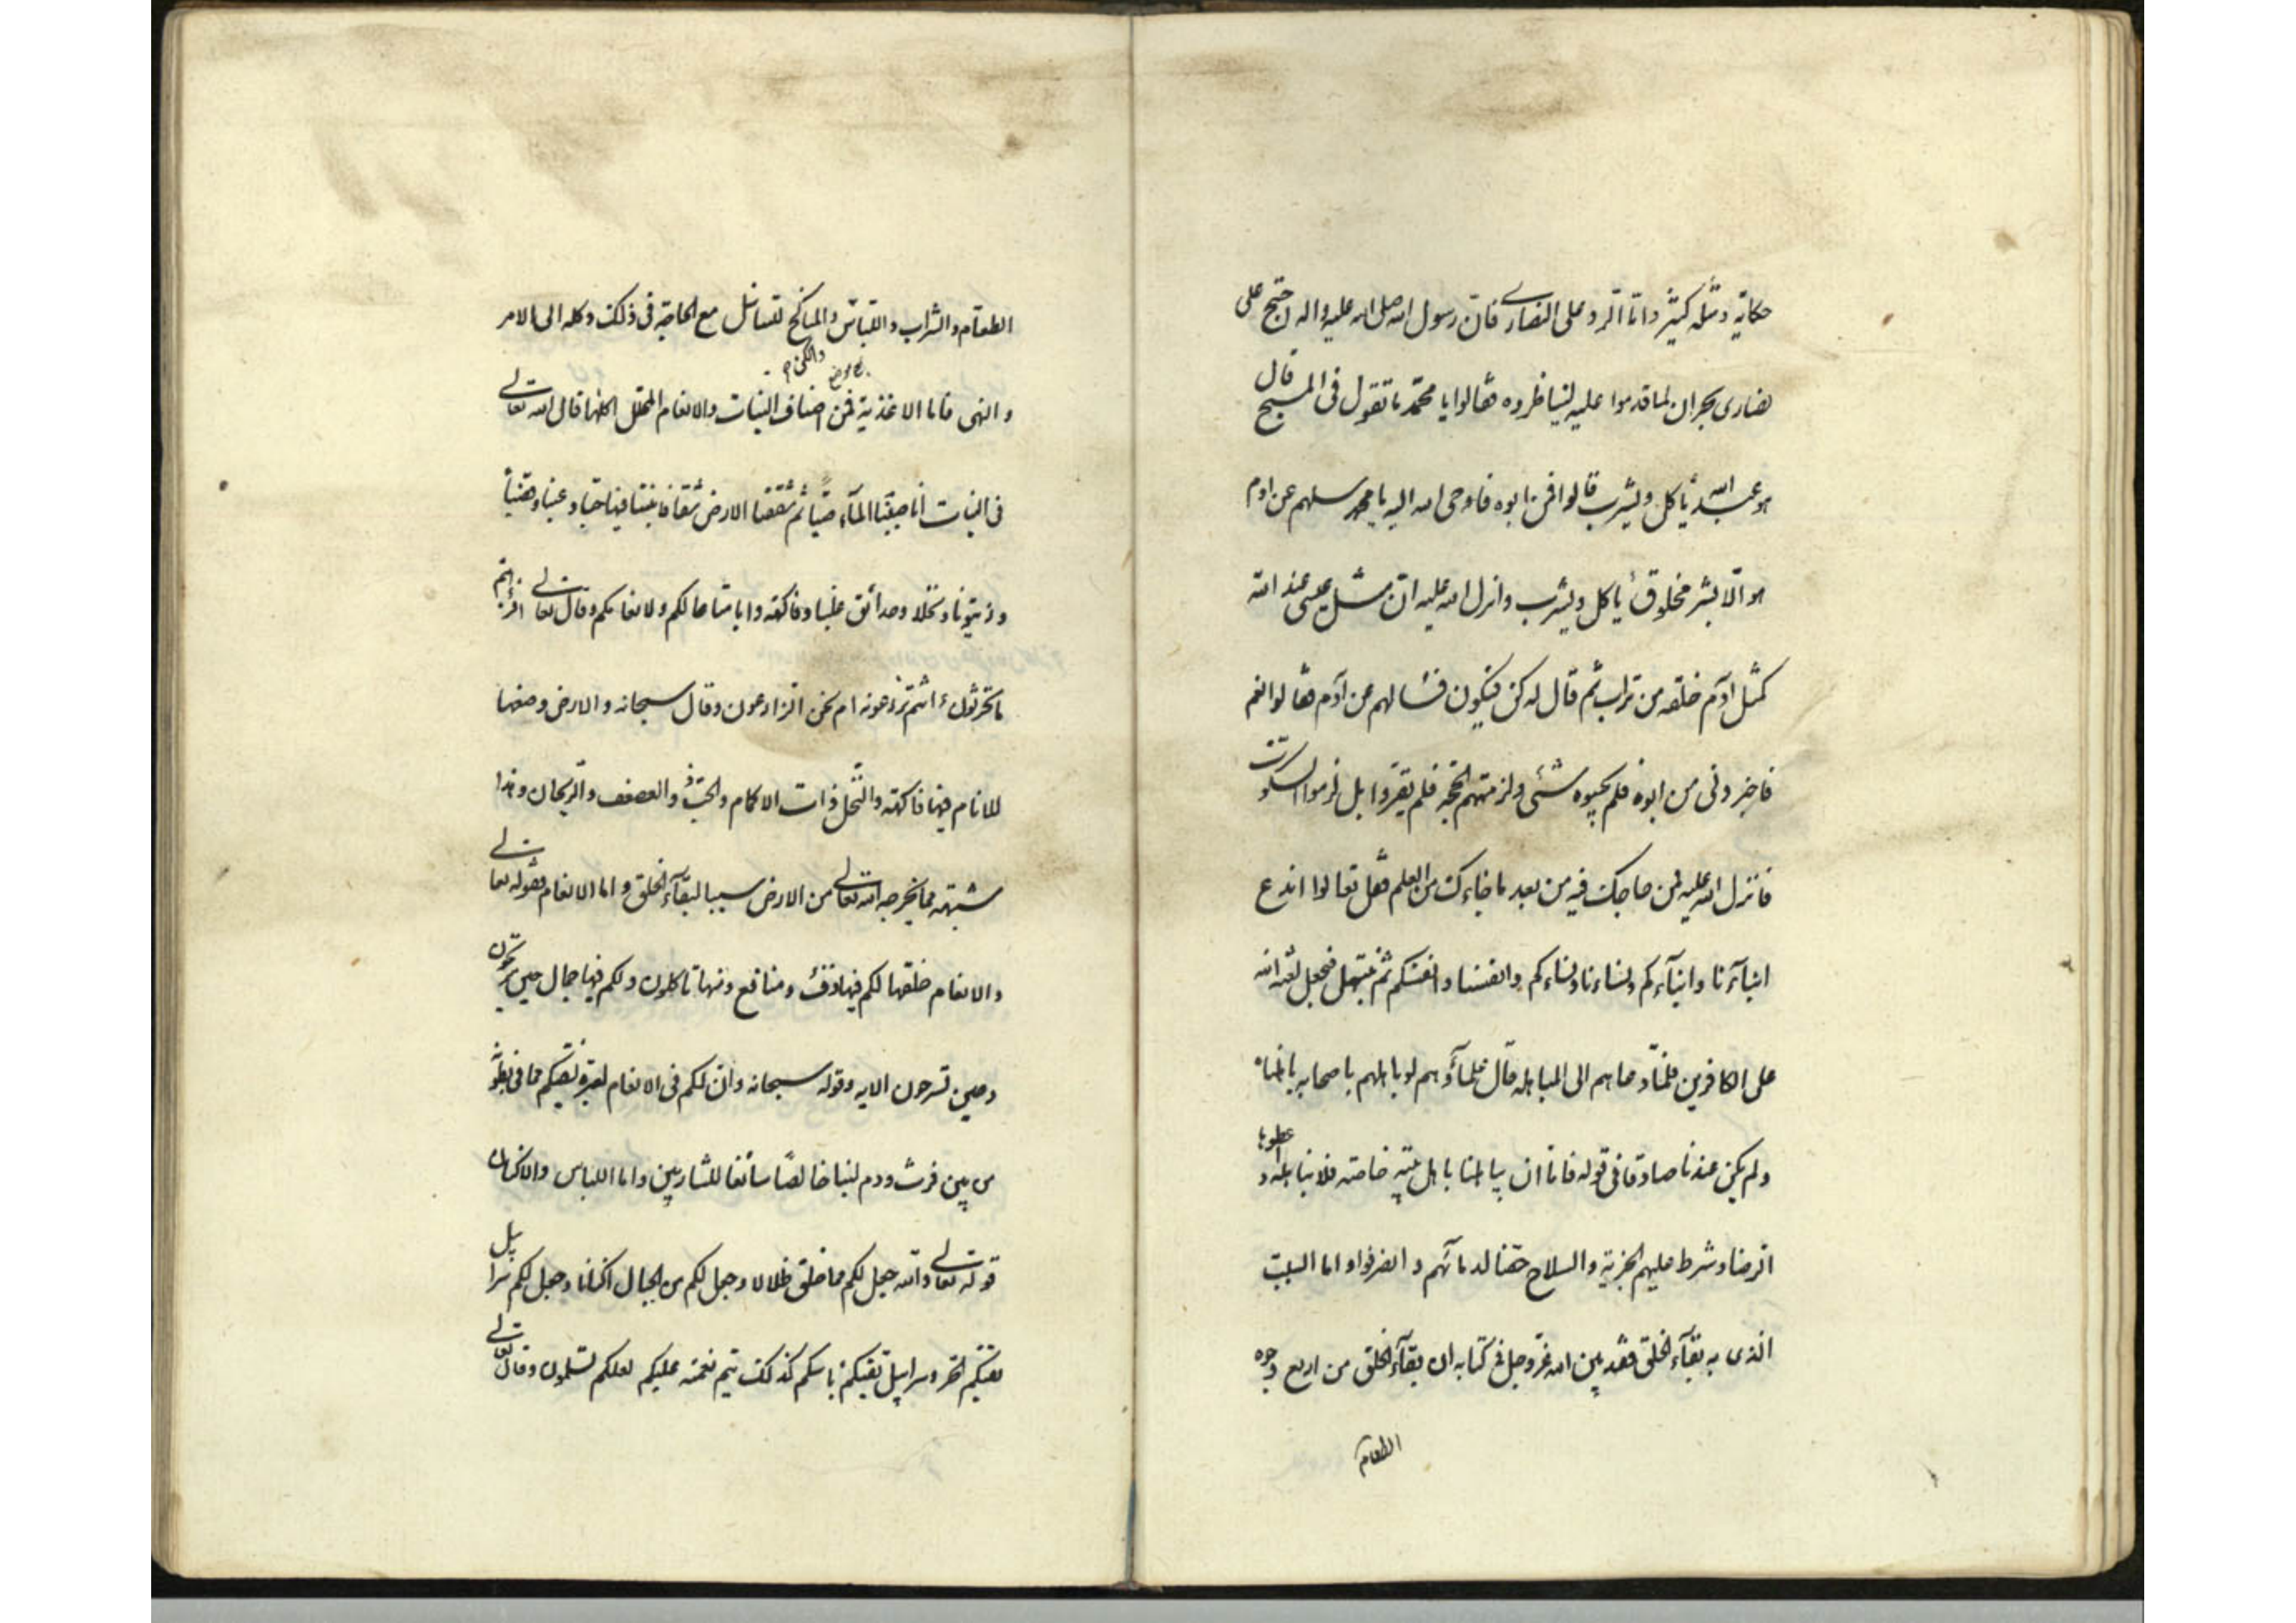 حكاية ومثله كثير واما الرد على النصارى فان رسول الله صلى الله عليه واله احتج على
نصارى نجران لما قدموا عليه ليناظروه فقالوا يا محمد ما تقول في المسيح قال
هو عبد الله يأكل ويشرب قالوا فمن ابوه فاوحى الله اليه يا محمد سلهم عن ادم
هو الا بشر مخلوق يأكل ويشرب وانزل الله عليه ان مثل عيسى عند الله
كمثل آدم خلقه من تراب ثم قال له كن فيكون فسالهم عن آدم فقالوا نعم
فاخبروني من ابوه فلم يجيبوه بشئ ولزمتهم الحجة فلم يقروا بل لزموا السكوت
فانزل الله عليه فمن حاجك فيه من بعد ما جاءك من العلم فقل تعالوا ندع
ابناءنا وابناءكم ونساءنا ونساءكم وانفسنا وانفسكم ثم نبتهل فنجعل لعنة الله
على الكافرين فلما دعاهم الى المباهلة قال علماؤهم لو باهلهم باصحابه باهلناه
ولم يكن عندنا صادقا في قوله فاما ان يباهلنا باهل بيته خاصة فلا نباهله واعطوه
الرضا وشرط عليهم الجزية والسلاح حقنا لدمائهم وانصرفوا واما السبب
الذى به بقاء الخلق فقد بين الله عز وجل في كتابه ان بقاء الخلق من اربع وجوه
الطعام
الطعام والشراب واللباس والمناكح للتناسل مع الحاجة في ذلك وكله الى الامر
والكن
والنهى فاما الاغذية فمن اصناف النبات والانعام المحلل اكلها قال الله تعالى
في النبات انا صببنا الماء صبا ثم شققنا الارض شقا فانبتنا فيها حبا وعنبا وقضبا
وزيتونا ونخلا وحدائق غلبا وفاكهة وابا متاعا لكم ولانعامكم وقال تعالى افرأيتم
ما تحرثون ءانتم تزرعونه ام نحن الزارعون وقال سبحانه والارض وضعها
للانام فيها فاكهة والنخل ذات الاكمام والحب ذو العصف والريحان وهذا
شبهه مما يخرجه الله تعالى من الارض سببا لبقاء الخلق واما الانعام فقوله تعالى
والانعام خلقها لكم فيها دفء ومنافع ومنها تاكلون ولكم فيها جمال حين تريحون
وحين تسرحون الايه وقوله سبحانه وان لكم في الانعام لعبرة نسقيكم مما في بطونه
من بين فرث ودم لبنا خالصا سائغا للشاربين واما اللباس والاكنان
قوله تعالى والله جعل لكم مما خلق ظلالا وجعل لكم من الجبال اكنانا وجعل لكم سرابيل
تقيكم الحر وسرابيل تقيكم باسكم كذلك يتم نعمته عليكم لعلكم تسلمون وقال تعالى